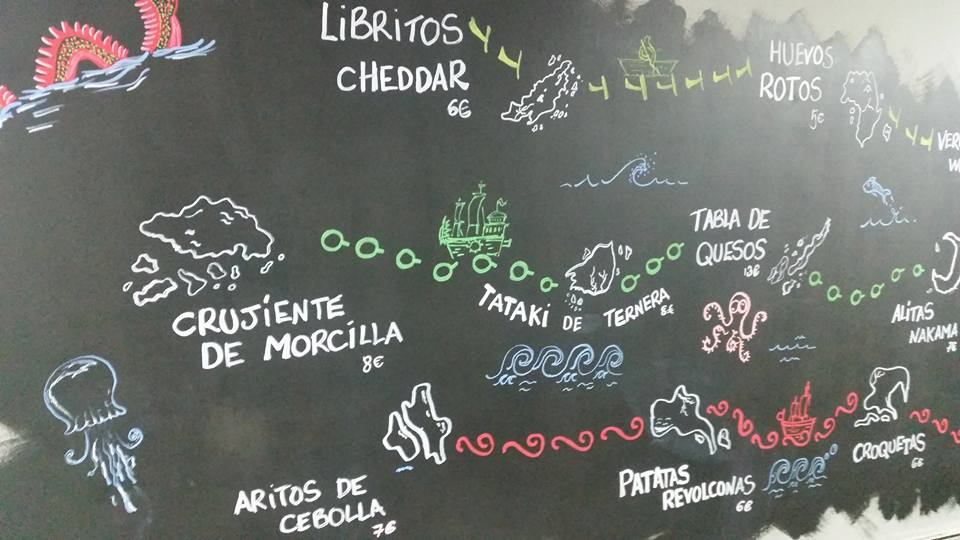 LIBRITOS
CHEDDAR
6€
HUEVOS
ROTOS
5€
TABLA DE
QUESOS
13€
CRUJIENTE
DE MORCILLA
8€
TATAKI DE TERNERA
8€
ALITAS
NAKAMA
7€
ARITOS DE
CEBOLLA
7€
PATATAS
REVOLCONAS
6€
CROQUETAS
6€